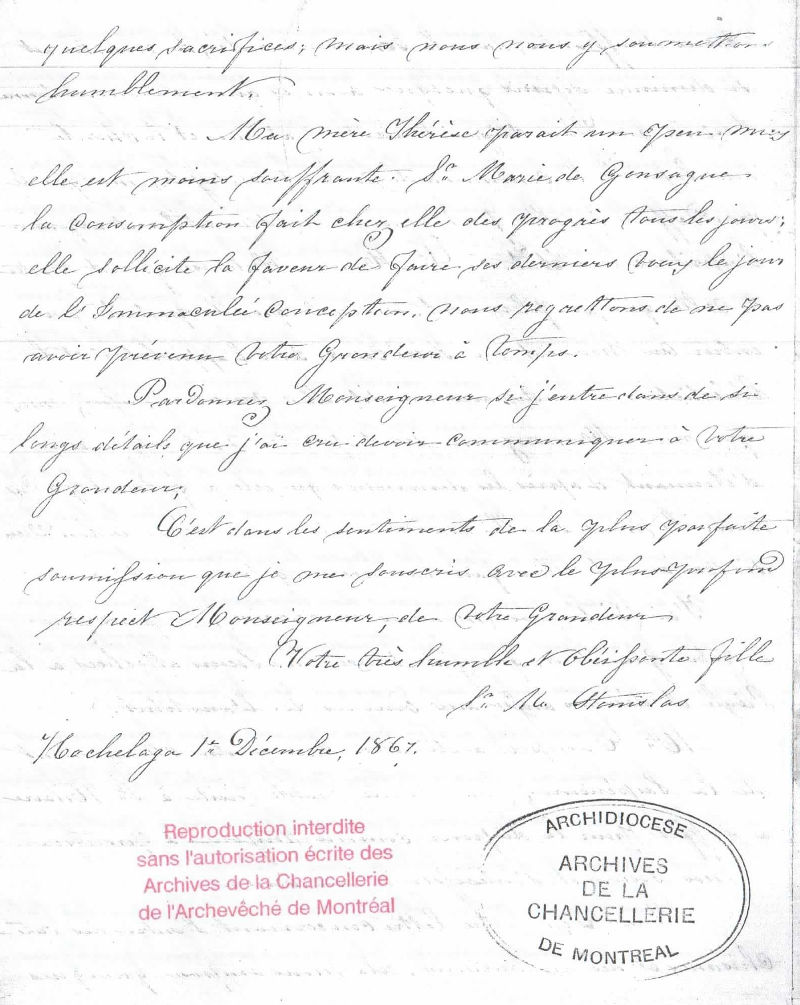 quelques sacrifices; mais nous nous y soumettons
humblement.
Ma mère Thérèse parait un peu mieux
elle est moins souffrante. Sr. Marie de Gonsague
la Consomption fait chez elle des progrès tous les jours;
elle sollicite la faveur de faire ses derniers voeux le jour
de l'Immaculée Conception, nous regrettons de ne pas
avoir prévenu Votre Grandeur à temps.
Pardonnez, Monseigneur si j'entre dans de si
longs détails que j'ai cru devoir communiquer à Votre
Grandeur;
C'est dans les sentiments de la plus parfaite
soumission que je me souscris avec le plus profond
respect Monseigneur, de Votre Grandeur
Votre très humble et Obéissante fille
Sr. M. Stanislas
Hochelaga 1er Décembre, 1867.
Reproduction interdite
sans l'autorisation écrite des
Archives de la Chancellerie
de l'Archevêché de Montréal
ARCHIDIOCESE
ARCHIVES
DE LA
CHANCELLERIE
DE MONTREAL